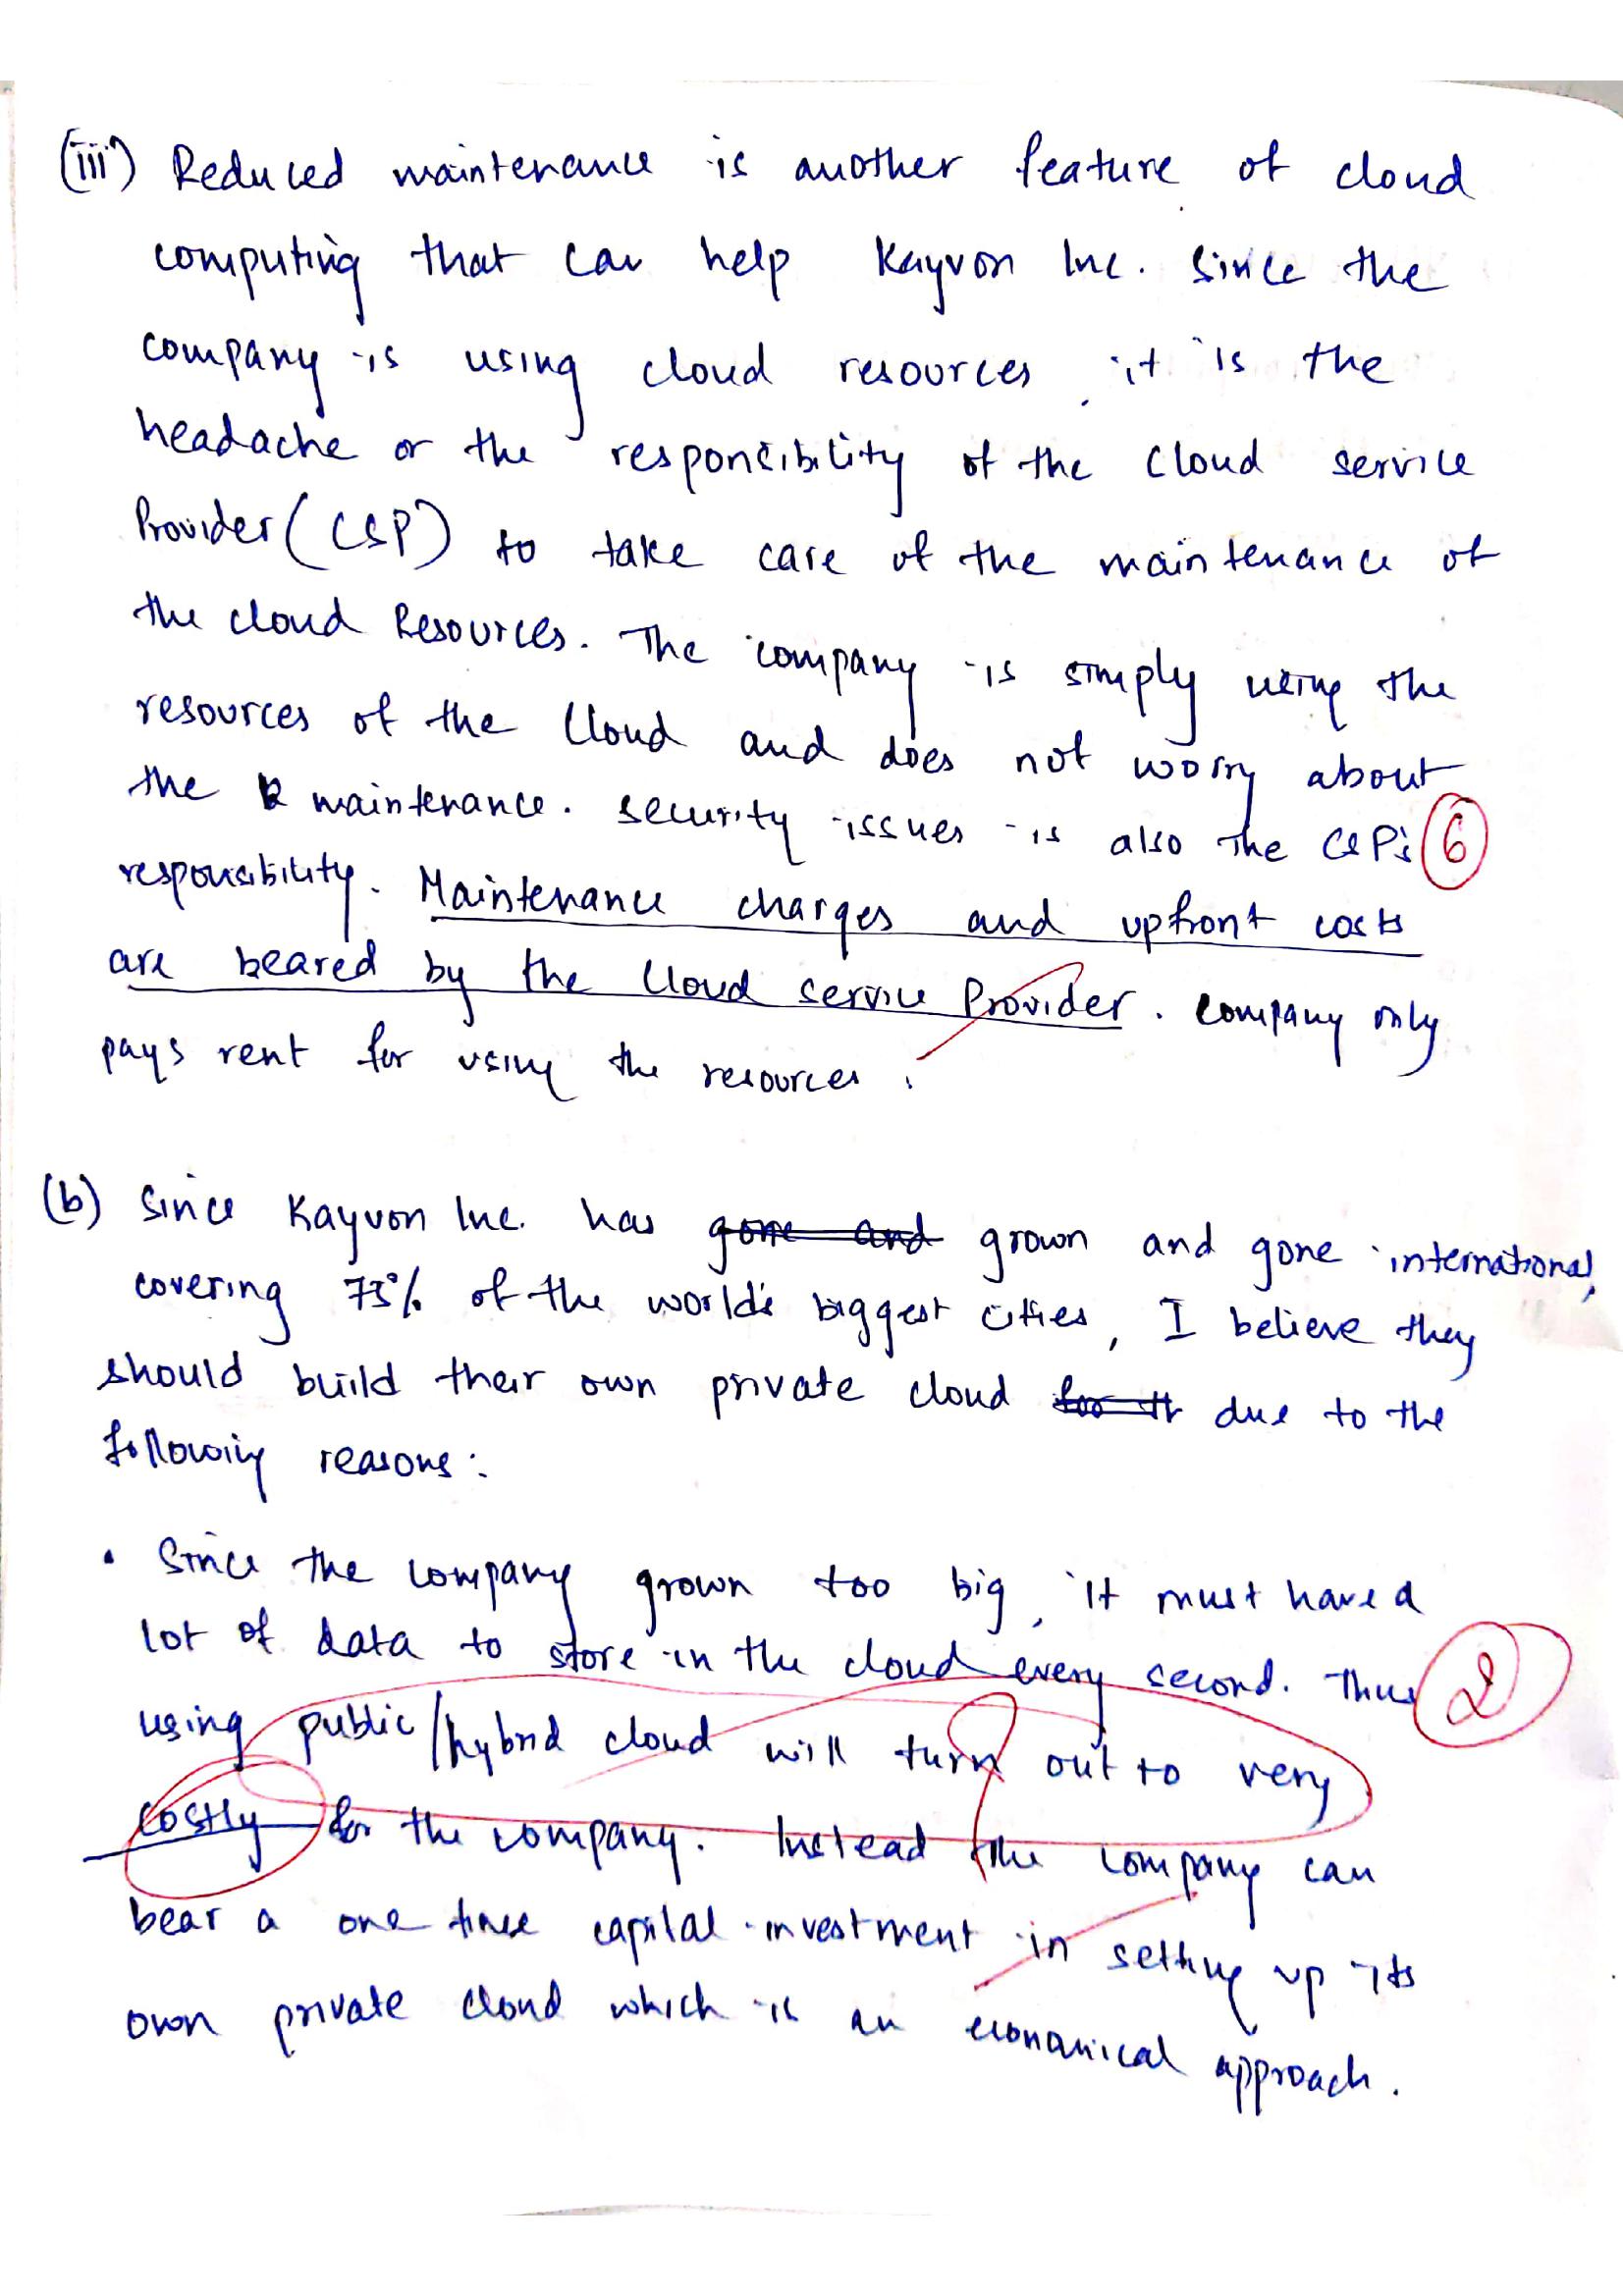 (iii) Reduced maintenance is another feature of cloud
computing that can help Kayvon Inc. Since the
company is using cloud resources, it is the
headache or the responsibility of the cloud service
Provider (CSP) to take care of the maintenance of
the cloud Resources. The company is simply using the
resources of the Cloud and does not worry about
the maintenance. security issues is also the CSP's
6
responsibility. Maintenance charges and upfront costs
are beared by the Cloud service Provider. company only
pays rent for using the resources.
(b) Since Kayvon Inc. has gone and grown and gone international,
covering 75% of the world's biggest cities, I believe they
should build their own private cloud due to the
following reasons:
• Since the company grown too big, it must have a
lot of data to store in the cloud every second. Thus
2
using public/hybrid cloud will turn out to very
costly for the company. Instead the company can
bear a one time capital investment in setting up its
own private cloud which is an economical approach.